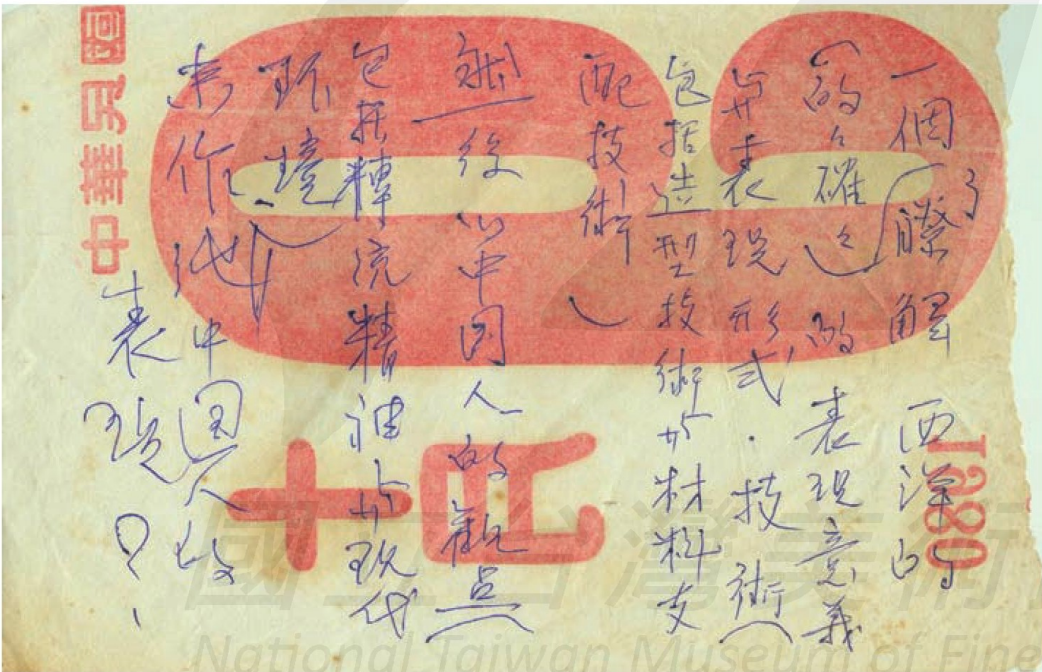 一個了瞭解 西洋的
(的々確々)的 表現意義
与表現形式．技術(
包括造型技術与材料支
配技術)
然後以中国人的觀点(
包括轉統精神与現代
环境)
來作他中國人的
表現？
中華民國
1980
國立台灣美術
National Taiwan Museum of Fine